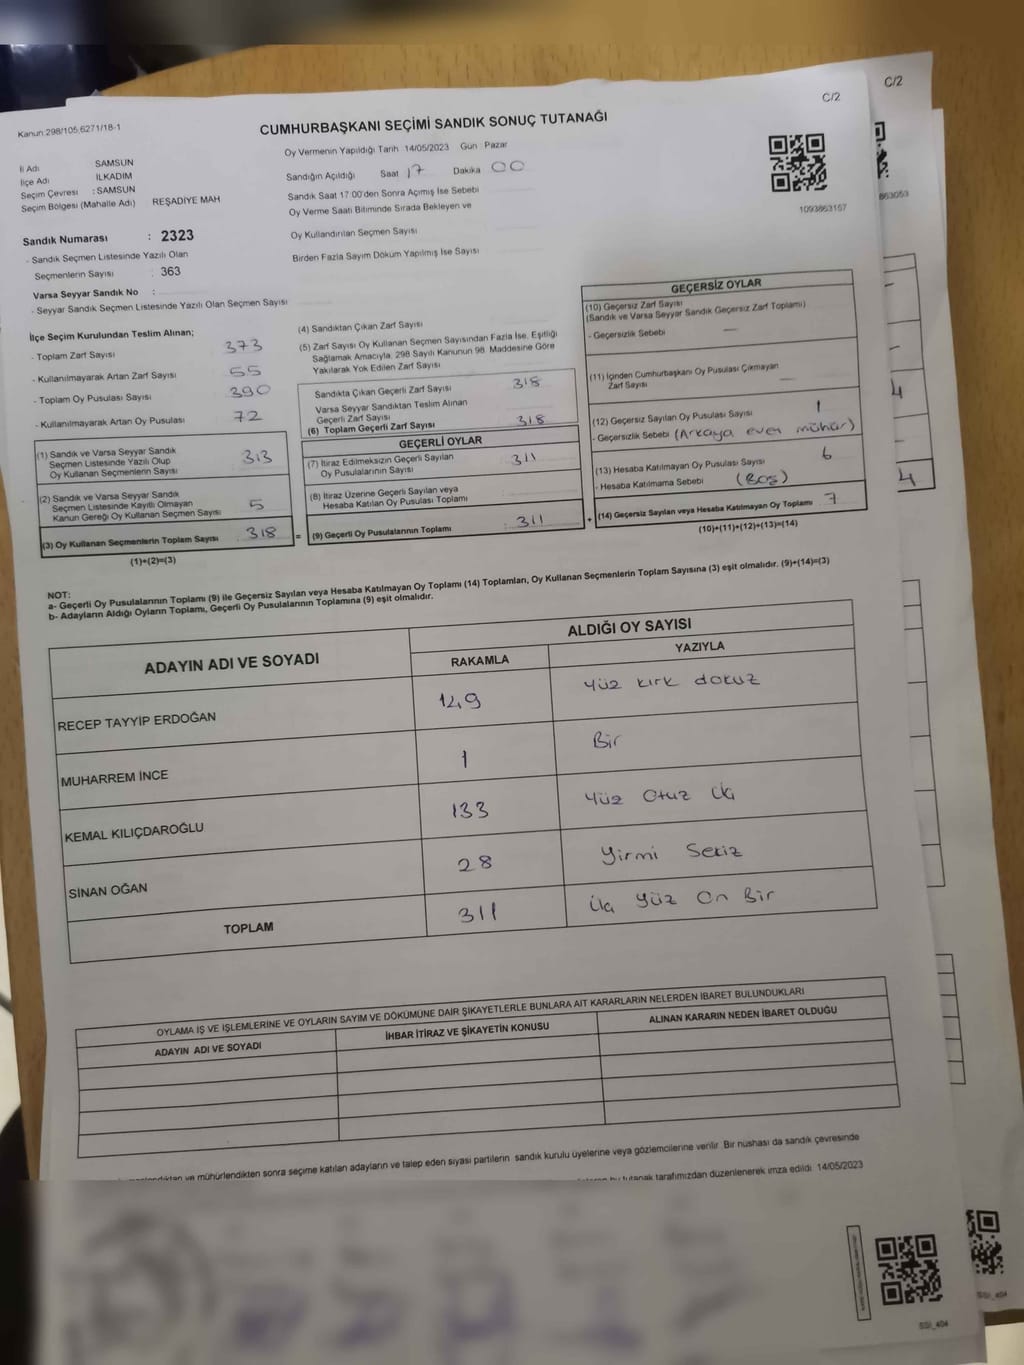 C/2
C/2
Kanun:298/105,6271/18-1
CUMHURBAŞKANI SEÇİMİ SANDIK SONUÇ TUTANAĞI
İl Adı : SAMSUN
İlçe Adı İLKADIM
Seçim Çevresi : SAMSUN
Seçim Bölgesi (Mahalle Adı) REŞADİYE MAH
Oy Vermenin Yapıldığı Tarih 14/05/2023 Gün Pazar
Sandığın Açıldığı Saat 17 Dakika 00
Sandık Saat 17:00'den Sonra Açımış İse Sebebi
Oy Verme Saati Bitiminde Sırada Bekleyen ve
Oy Kullandırılan Seçmen Sayısı
Birden Fazla Sayım Döküm Yapılmış İse Sayısı
1093863167
863053
Sandık Numarası : 2323
- Sandık Seçmen Listesinde Yazılı Olan
Seçmenlerin Sayısı : 363
Varsa Seyyar Sandık No :
- Seyyar Sandık Seçmen Listesinde Yazılı Olan Seçmen Sayısı
İlçe Seçim Kurulundan Teslim Alınan;
- Toplam Zarf Sayısı 373
- Kullanılmayarak Artan Zarf Sayısı 55
- Toplam Oy Pusulası Sayısı 390
- Kullanılmayarak Artan Oy Pusulası 72
(1) Sandık ve Varsa Seyyar Sandık
Seçmen Listesinde Yazılı Olup
Oy Kullanan Seçmenlerin Sayısı 313
(2) Sandık ve Varsa Seyyar Sandık
Seçmen Listesinde Kayıtlı Olmayan
Kanun Gereği Oy Kullanan Seçmen Sayısı 5
(3) Oy Kullanan Seçmenlerin Toplam Sayısı 318
(1)+(2)=(3)
(4) Sandıktan Çıkan Zarf Sayısı
(5) Zarf Sayısı Oy Kullanan Seçmen Sayısından Fazla İse, Eşitliği
Sağlamak Amacıyla, 298 Sayılı Kanunun 98. Maddesine Göre
Yakılarak Yok Edilen Zarf Sayısı
Sandıkta Çıkan Geçerli Zarf Sayısı 318
Varsa Seyyar Sandıktan Teslim Alınan
Geçerli Zarf Sayısı
(6) Toplam Geçerli Zarf Sayısı 318
GEÇERLİ OYLAR
(7) İtiraz Edilmeksizin Geçerli Sayılan
Oy Pusulalarının Sayısı 311
(8) İtiraz Üzerine Geçerli Sayılan veya
Hesaba Katılan Oy Pusulası Toplamı
= (9) Geçerli Oy Pusulalarının Toplamı 311 +
GEÇERSİZ OYLAR
(10) Geçersiz Zarf Sayısı
(Sandık ve Varsa Seyyar Sandık Geçersiz Zarf Toplamı)
- Geçersizlik Sebebi —
(11) İçinden Cumhurbaşkanı Oy Pusulası Çıkmayan
Zarf Sayısı —
(12) Geçersiz Sayılan Oy Pusulası Sayısı 1
- Geçersizlik Sebebi (Arkaya evet mühür)
(13) Hesaba Katılmayan Oy Pusulası Sayısı 6
- Hesaba Katılmama Sebebi (Boş)
(14) Geçersiz Sayılan veya Hesaba Katılmayan Oy Toplamı 7
(10)+(11)+(12)+(13)=(14)
4
4
NOT:
a- Geçerli Oy Pusulalarının Toplamı (9) ile Geçersiz Sayılan veya Hesaba Katılmayan Oy Toplamı (14) Toplamları, Oy Kullanan Seçmenlerin Toplam Sayısına (3) eşit olmalıdır. (9)+(14)=(3)
b- Adayların Aldığı Oyların Toplamı, Geçerli Oy Pusulalarının Toplamına (9) eşit olmalıdır.
ADAYIN ADI VE SOYADI
ALDIĞI OY SAYISI
RAKAMLA YAZIYLA
RECEP TAYYİP ERDOĞAN 149 yüz kırk dokuz
MUHARREM İNCE 1 Bir
KEMAL KILIÇDAROĞLU 133 Yüz Otuz
SİNAN OĞAN 28 Yirmi Sekiz
TOPLAM 311 yüz On Bir
OYLAMA İŞ VE İŞLEMLERİNE VE OYLARIN SAYIM VE DÖKÜMÜNE DAİR ŞİKAYETLERLE BUNLARA AİT KARARLARIN NELERDEN İBARET BULUNDUKLARI
ADAYIN ADI VE SOYADI İHBAR İTİRAZ VE ŞİKAYETİN KONUSU ALINAN KARARIN NEDEN İBARET OLDUĞU
ve mühürlendikten sonra seçime katılan adayların ve talep eden siyasi partilerin sandık kurulu üyelerine veya gözlemcilerine verilir. Bir nüshası da sandık çevresinde
bu tutanak tarafımızdan düzenlenerek imza edildi. 14/05/2023
SSİ_404
SSİ_404